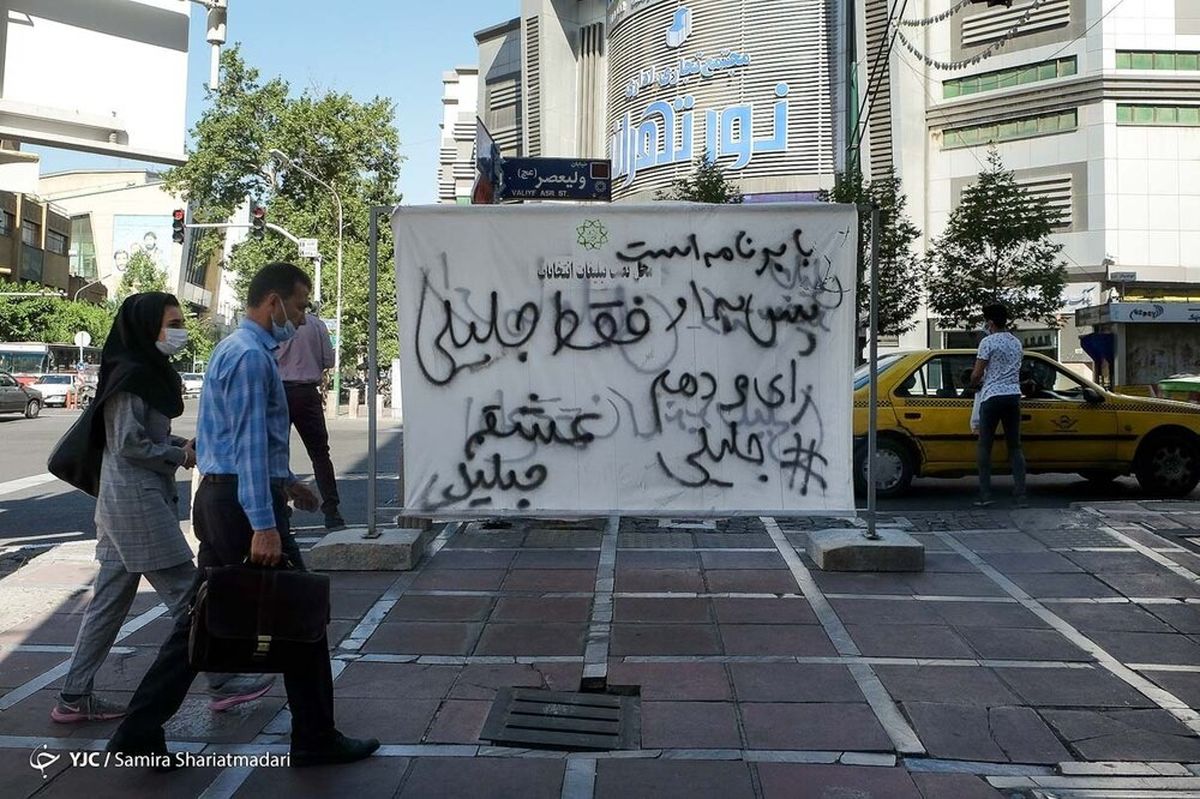 مجتمع تجاری اداری
نور تهران
ولیعصر (عج)
VALIYE ASR ST.
با برنامه است
محل نصب تبلیغات انتخابات
فقط جلیلی
رای و دهم
#جلیلی
YJC / Samira Shariatmadari